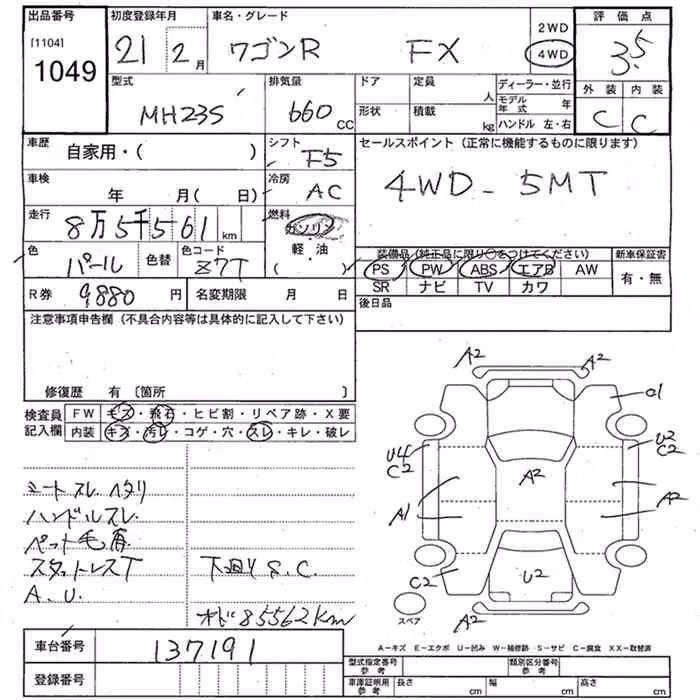 出品番号 初度登録年月 車名・グレード 2WD 評価点
[1104] 1049 21 2月 ワゴンR FX 4WD 3.5
型式 排気量 ドア 定員 人 ディーラー・並行 外装 内装
MH23S 660cc 形状 積載 kg モデル年式 年 C C
ハンドル 左・右
車歴 自家用・( ) シフト F5 セールスポイント (正常に機能するものに限ります)
車検 年 月( 日) 冷房 AC 4WD - 5MT
走行 8万5千561km 燃料 ガソリン・軽油 ( )
色 パール 色替 色コード Z7T 装備品(純正品に限り○をつけてください) 新車保証書
PS PW ABS エアB AW 有・無
SR ナビ TV カワ
R券 9,880円 名変期限 月 日 後日品
注意事項申告欄 (不具合内容等は具体的に記入して下さい)
修復歴 有 〔箇所 〕
検査員記入欄 FW キズ・飛石・ヒビ割・リペア跡・X要
内装 キズ・汚レ・コゲ・穴・スレ・キレ・破レ
シートスレ ヘタリ
ハンドルスレ
ペット毛有
スタットレスT 下廻りS.C.
A.U.
オド85562km
A2 A2
C1
U4 C2 U2 C2
A2
A1 A2
C2 U2
A2
スペア
A-キズ E-エクボ U-凹み W-補修跡 S-サビ C-腐食 XX-取替済
車台番号 137191
登録番号
型式指定番号参考 類別区分番号参考
車庫証明用参考 長さ cm 幅 cm 高さ cm